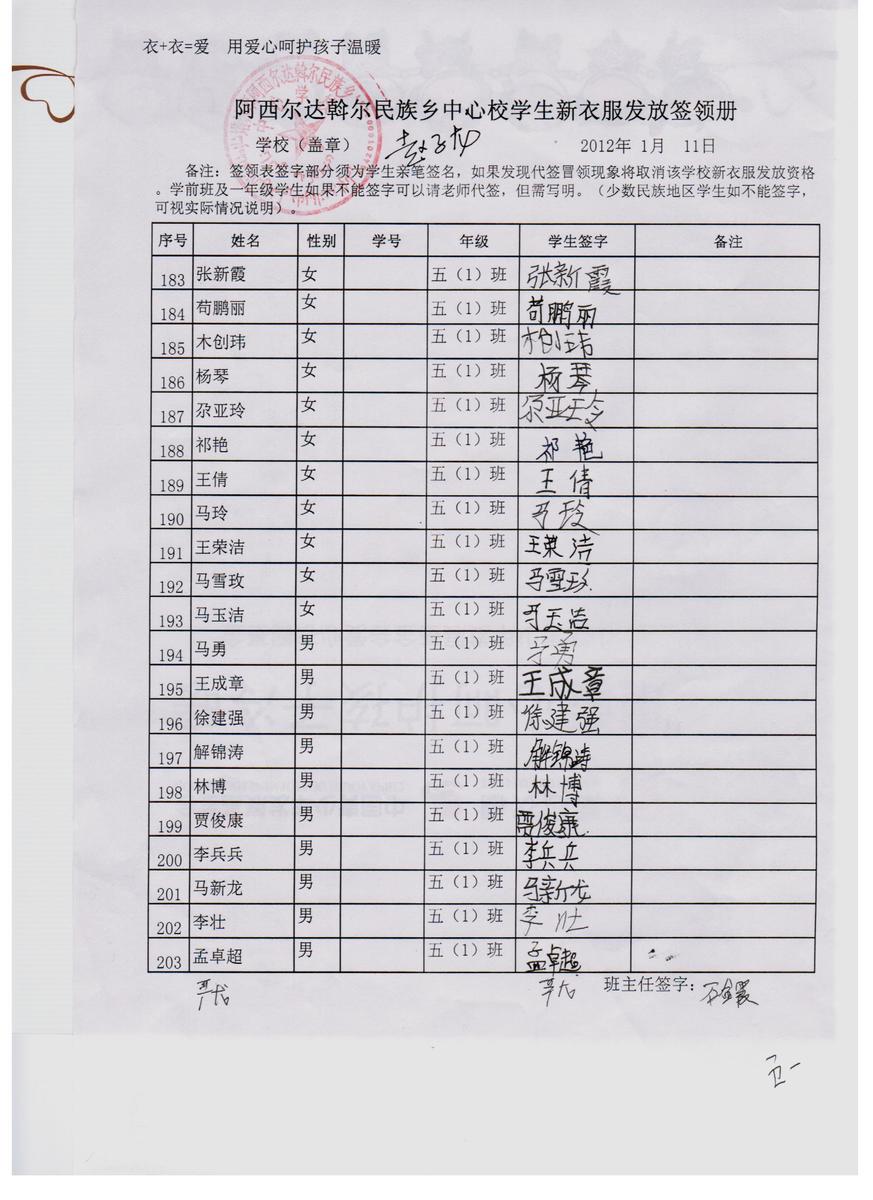 衣+衣=爱 用爱心呵护孩子温暖
阿西尔达斡尔民族乡中心校学生新衣服发放签领册
学校（盖章） 2012年 1月 11日
备注：签领表签字部分须为学生亲笔签名，如果发现代签冒领现象将取消该学校新衣服发放资格
。学前班及一年级学生如果不能签字可以请老师代签，但需写明。（少数民族地区学生如不能签字，
可视实际情况说明）。
序号 姓名 性别 学号 年级 学生签字 备注
183 张新霞 女 五（1）班 张新霞
184 苟鹏丽 女 五（1）班 苟鹏丽
185 木创玮 女 五（1）班 木创玮
186 杨琴 女 五（1）班 杨琴
187 尕亚玲 女 五（1）班 尕亚玲
188 祁艳 女 五（1）班 祁艳
189 王倩 女 五（1）班 王倩
190 马玲 女 五（1）班 马玲
191 王荣洁 女 五（1）班 王荣洁
192 马雪玫 女 五（1）班 马雪玫
193 马玉洁 女 五（1）班 马玉洁
194 马勇 男 五（1）班 马勇
195 王成章 男 五（1）班 王成章
196 徐建强 男 五（1）班 徐建强
197 解锦涛 男 五（1）班 解锦涛
198 林博 男 五（1）班 林博
199 贾俊康 男 五（1）班 贾俊康
200 李兵兵 男 五（1）班 李兵兵
201 马新龙 男 五（1）班 马新龙
202 李壮 男 五（1）班 李壮
203 孟卓超 男 五（1）班 孟卓超
班主任签字：